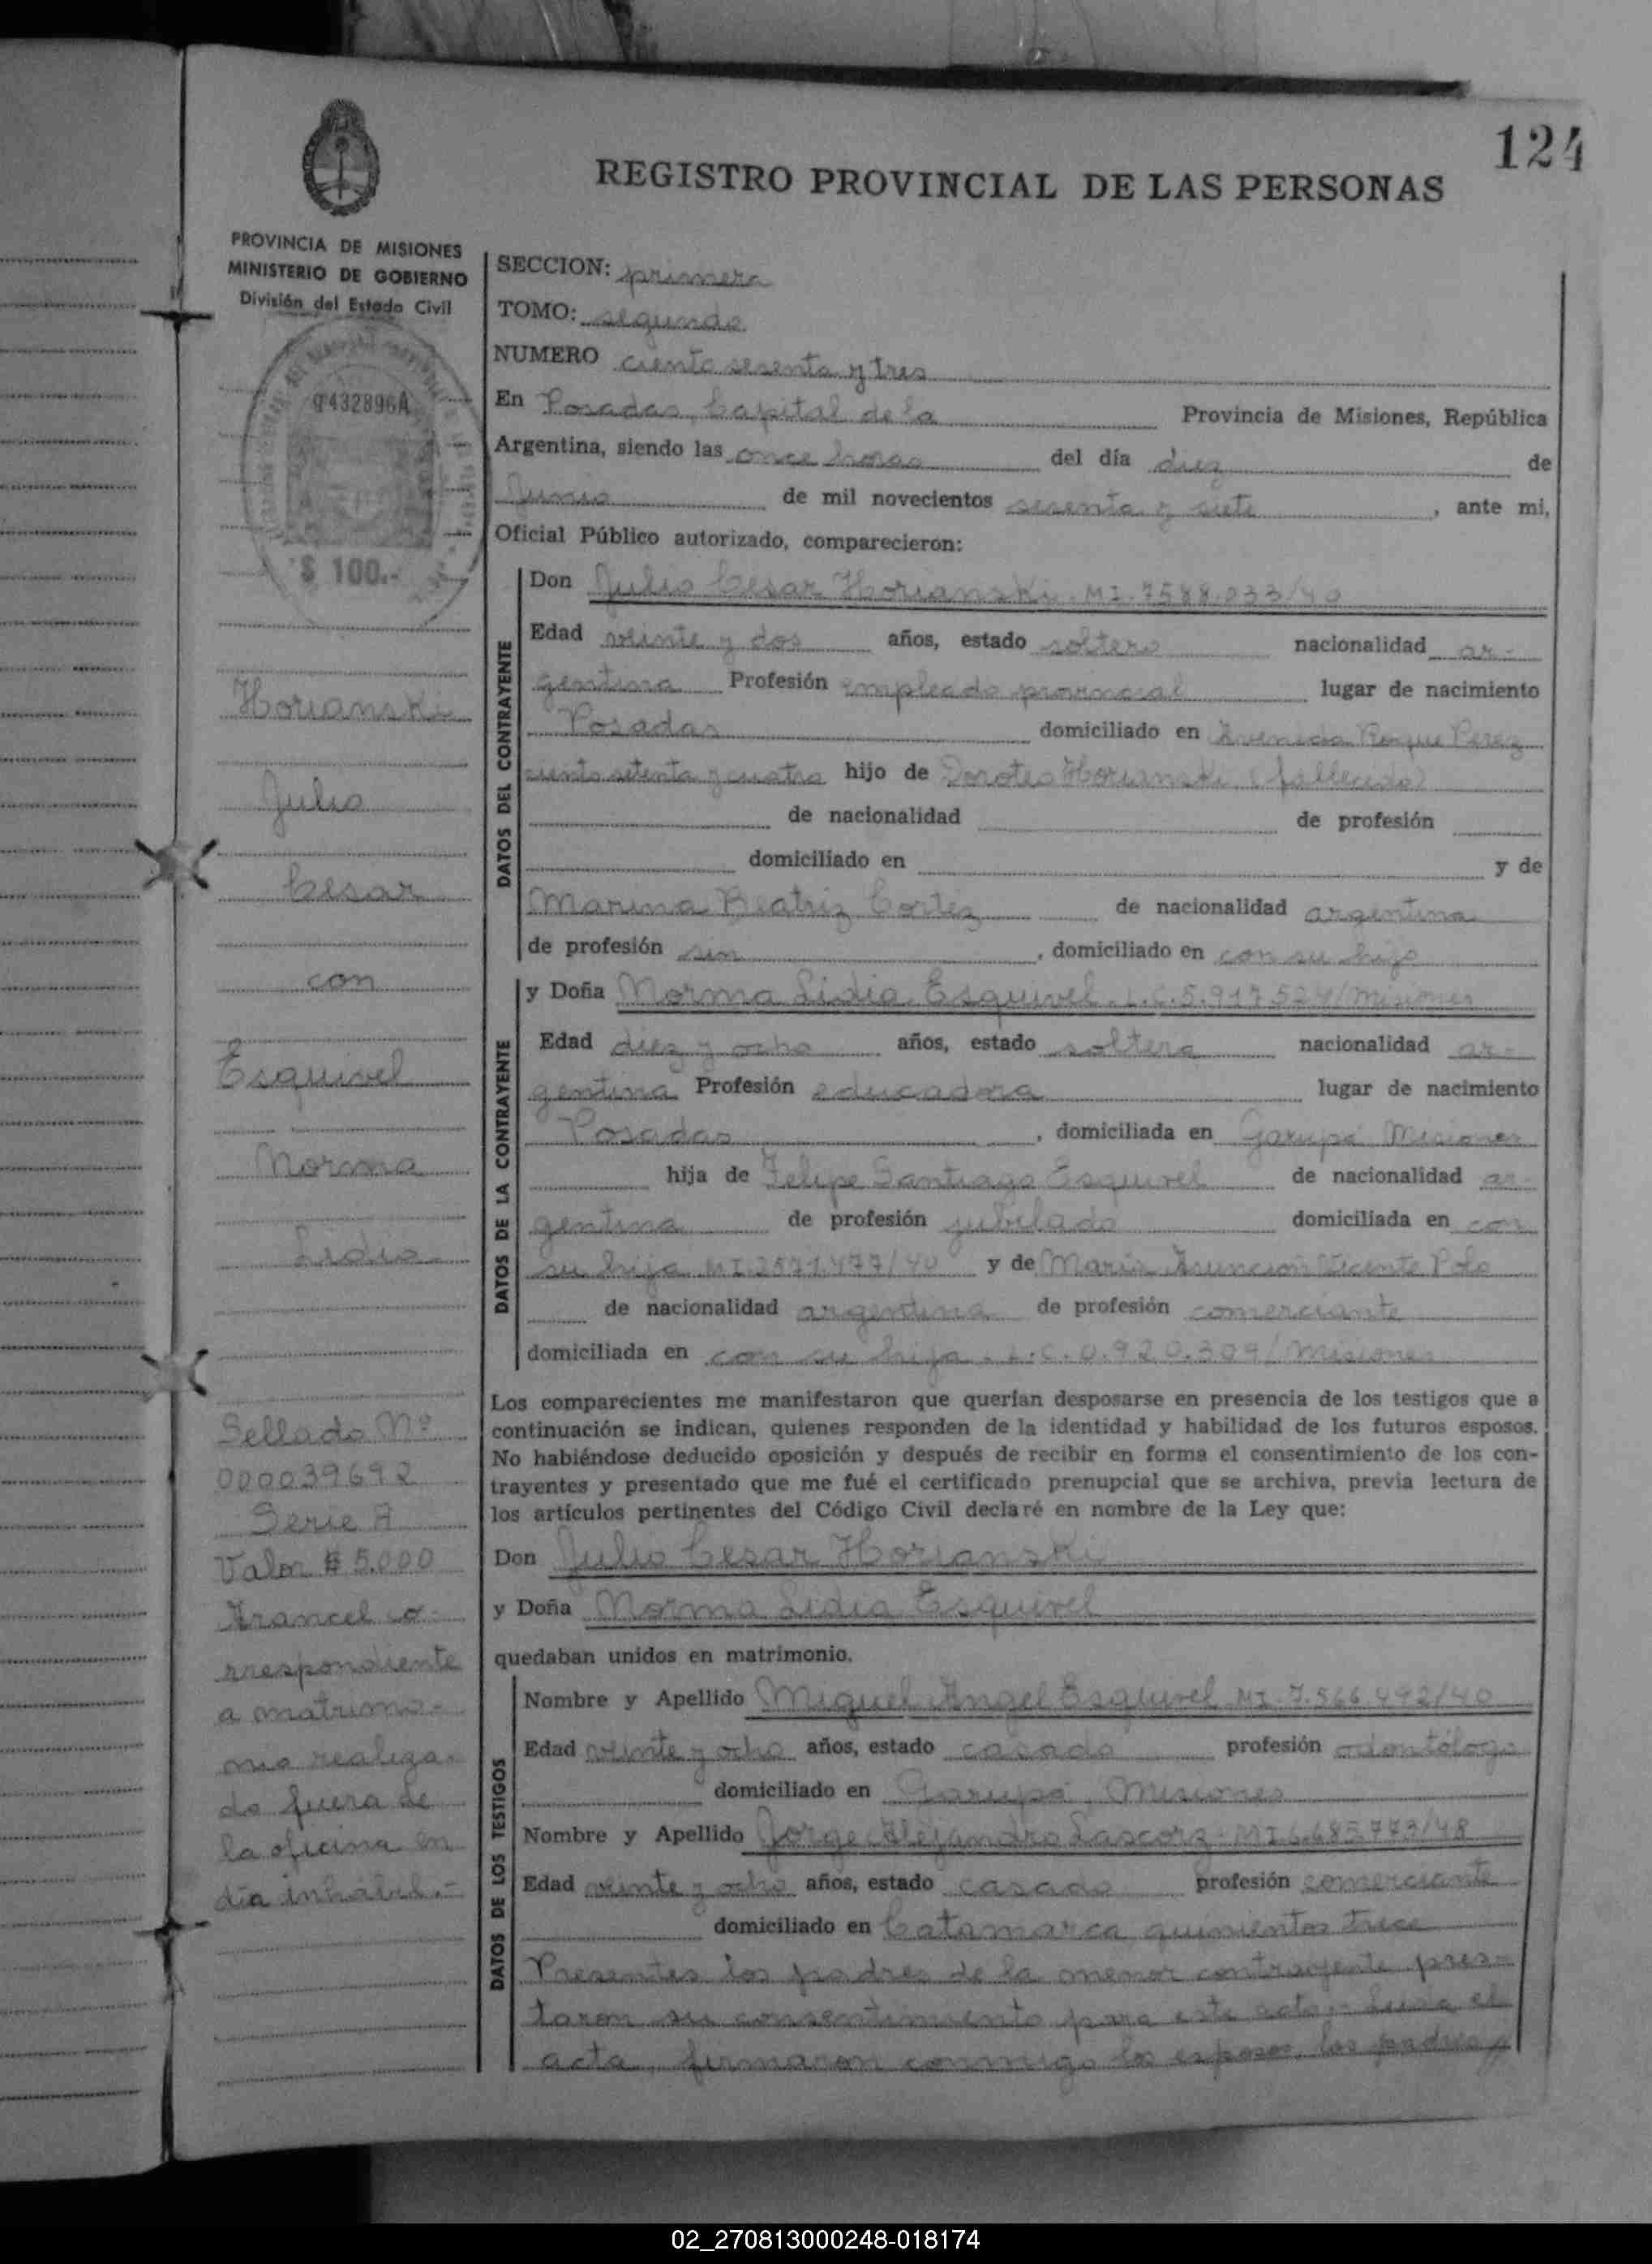 124
REGISTRO PROVINCIAL DE LAS PERSONAS
PROVINCIA DE MISIONES
MINISTERIO DE GOBIERNO
División del Estado Civil
432896A
$ 100.-
Horianski
Julio
Cesar
con
Esquivel
Norma
Lidia
Sellado Nº
000039692
Serie A
Valor $ 5.000
Arancel co-
rrespondiente
a matrimo-
nio realiza-
do fuera de
la oficina en
día inhábil.-
SECCION: primera
TOMO: segundo
NUMERO ciento sesenta y tres
En Posadas, Capital de la Provincia de Misiones, República
Argentina, siendo las once horas del día diez de
Junio de mil novecientos sesenta y siete, ante mi,
Oficial Público autorizado, comparecieron:
DATOS DEL CONTRAYENTE
Don Julio Cesar Horianski. MI. 7588.033/40
Edad veinte y dos años, estado soltero nacionalidad ar-
gentina Profesión empleado provincial lugar de nacimiento
Posadas domiciliado en Avenida Roque Perez
ciento setenta y cuatro hijo de Doroteo Horianski (fallecido)
de nacionalidad de profesión
domiciliado en y de
Marina Beatriz Cortez de nacionalidad argentina
de profesión sin, domiciliado en con su hijo
DATOS DE LA CONTRAYENTE
y Doña Norma Lidia Esquivel. L.C. 5.917.524/Misiones
Edad diez y ocho años, estado soltera nacionalidad ar-
gentina Profesión educadora lugar de nacimiento
Posadas, domiciliada en Garupá Misiones
hija de Felipe Santiago Esquivel de nacionalidad ar-
gentina de profesión jubilado domiciliada en con
su hija MI 2571.477/40 y de María Asunción Vicente Polo
de nacionalidad argentina de profesión comerciante
domiciliada en con su hija. L.C. 0.920.309/Misiones
Los comparecientes me manifestaron que querían desposarse en presencia de los testigos que a
continuación se indican, quienes responden de la identidad y habilidad de los futuros esposos.
No habiéndose deducido oposición y después de recibir en forma el consentimiento de los con-
trayentes y presentado que me fué el certificado prenupcial que se archiva, previa lectura de
los artículos pertinentes del Código Civil declaré en nombre de la Ley que:
Don Julio Cesar Horianski
y Doña Norma Lidia Esquivel
quedaban unidos en matrimonio.
DATOS DE LOS TESTIGOS
Nombre y Apellido Miguel Angel Esquivel MI. 7.566.492/40
Edad veinte y ocho años, estado casado profesión odontólogo
domiciliado en Garupá, Misiones
Nombre y Apellido Jorge Alejandro Lascorz. MI 6.685.773/48
Edad veinte y ocho años, estado casado profesión comerciante
domiciliado en Catamarca quinientos trece
Presentes los padres de la menor contrayente pres-
taron su consentimiento para este acto.- Leida el
acta, firmaron conmigo los esposos, los padres y
02_270813000248-018174